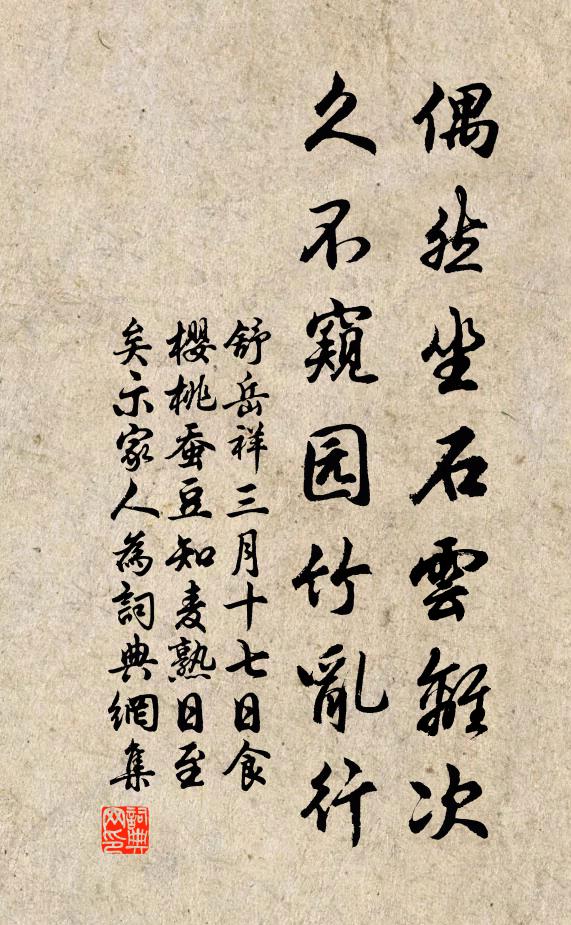 偶然坐石雲離次
久不窺园竹亂行
舒岳祥三月十七日食
櫻桃蚕豆知麦熟日至
矣示家人為詞典網集
詞典
网印